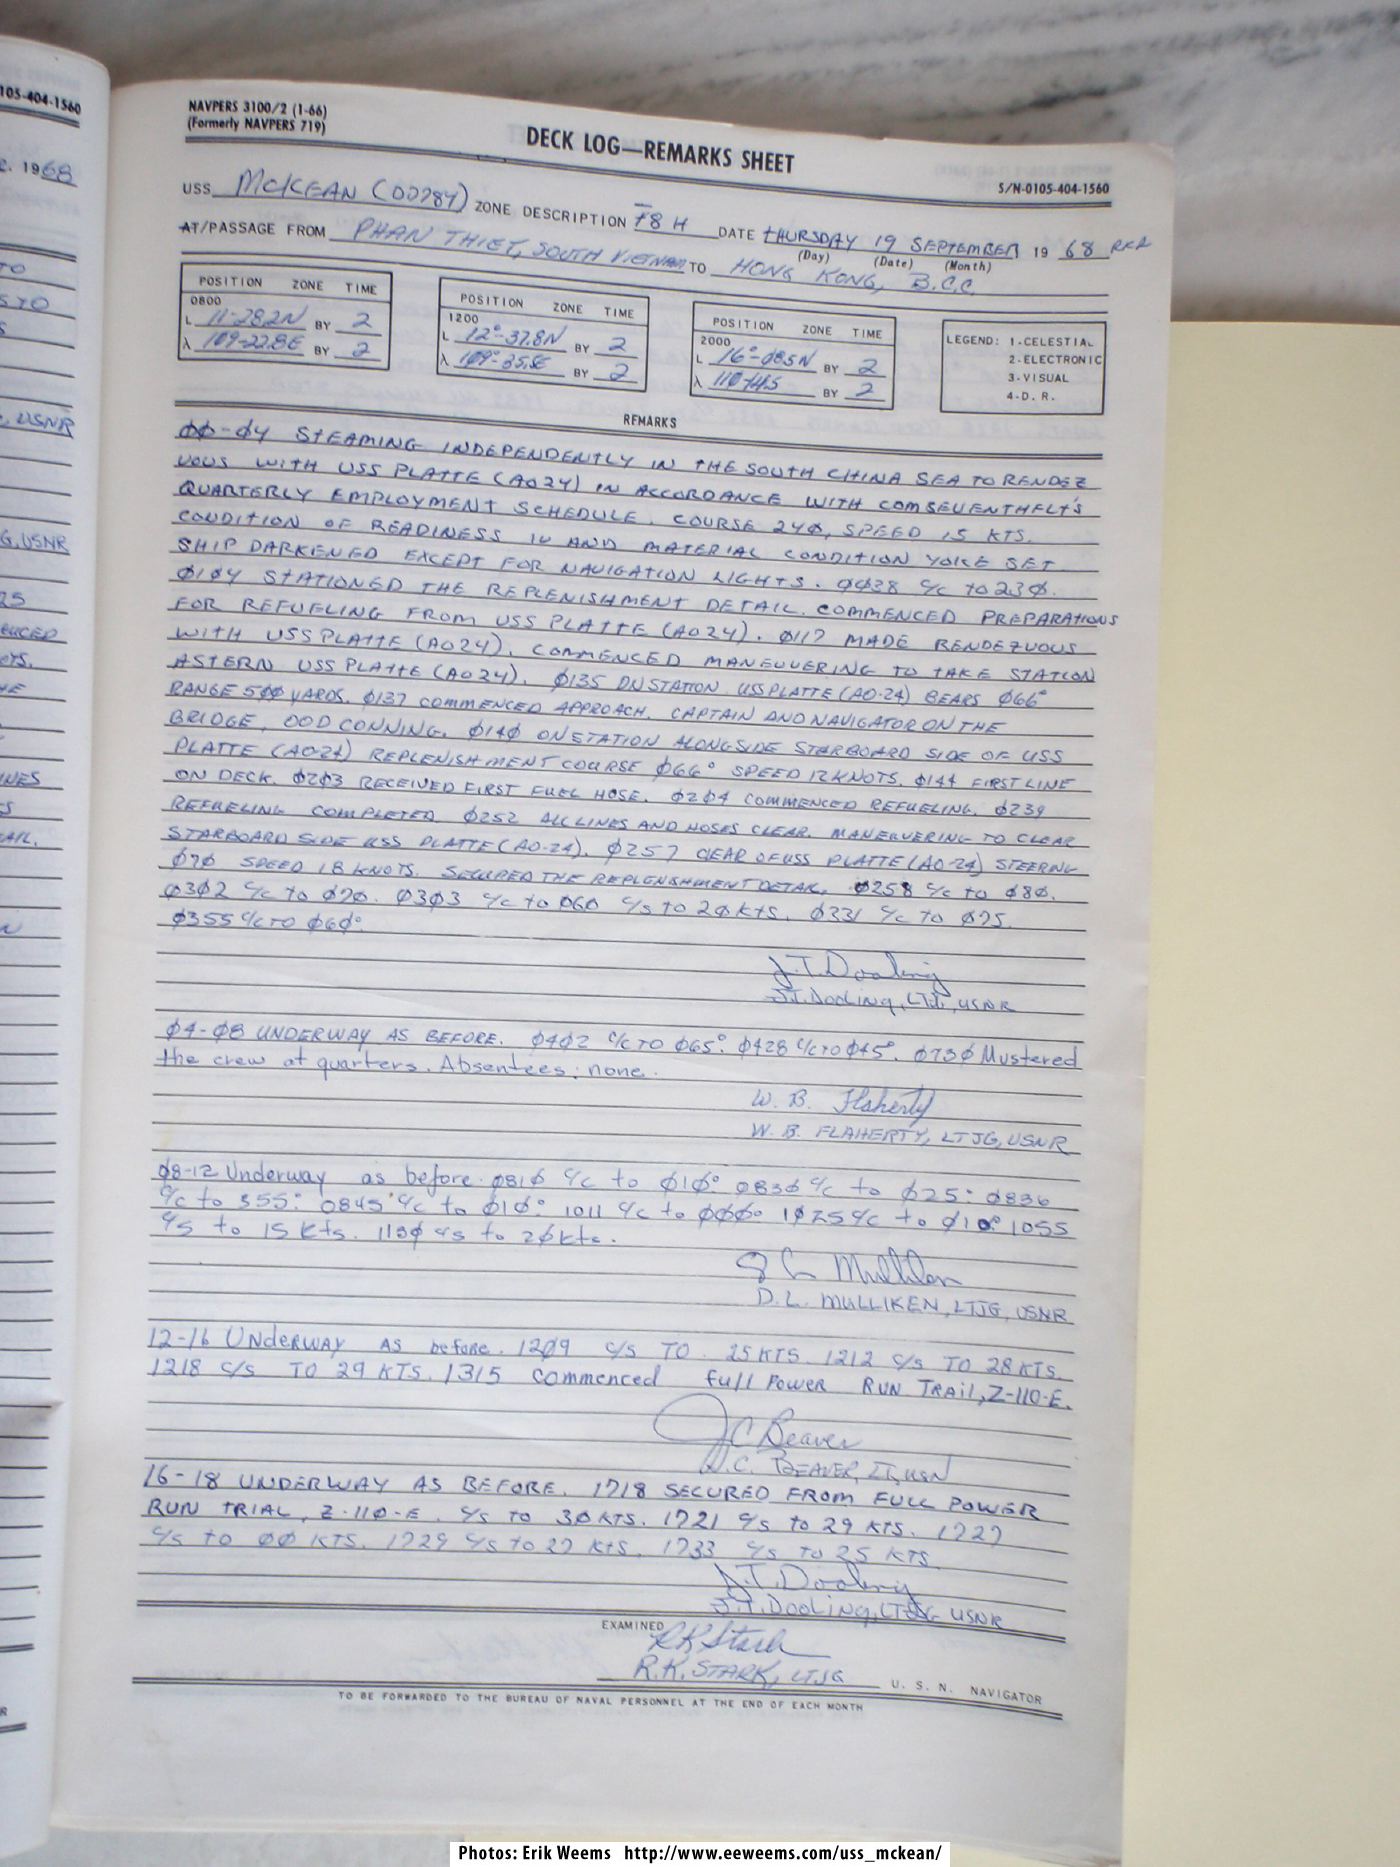 105-404-1560
C. 1968
TO
S TO
S
C, USNR
G, USNR
25
OTS.
HE
INES
S
AIL.
R
NAVPERS 3100/2 (1-66)
(Formerly NAVPERS 719)
DECK LOG—REMARKS SHEET
S/N-0105-404-1560
USS McKEAN (DD784) ZONE DESCRIPTION -8 H DATE THURSDAY 19 SEPTEMBER 19 68
(Day) (Date) (Month)
AT/PASSAGE FROM PHAN THIET, SOUTH VIETNAM TO HONG KONG, B.C.C.
POSITION ZONE TIME
0800
L 11-28.2N BY 2
λ 109-22.8E BY 2
POSITION ZONE TIME
1200
L 12°-37.8N BY 2
λ 109°-35.5E BY 2
POSITION ZONE TIME
2000
L 16°-08.5N BY 2
λ BY 2
LEGEND: 1-CELESTIAL
2-ELECTRONIC
3-VISUAL
4-D. R.
REMARKS
ØØ-Ø4 STEAMING INDEPENDENTLY IN THE SOUTH CHINA SEA TO RENDEZ
VOUS WITH USS PLATTE (AO24) IN ACCORDANCE WITH COMSEVENTHFLT'S
QUARTERLY EMPLOYMENT SCHEDULE. COURSE 24Ø, SPEED 15 KTS.
CONDITION OF READINESS IV AND MATERIAL CONDITION YOKE SET.
SHIP DARKENED EXCEPT FOR NAVIGATION LIGHTS. ØØ38 C/C TO 23Ø.
Ø1Ø4 STATIONED THE REPLENISHMENT DETAIL. COMMENCED PREPARATIONS
FOR REFUELING FROM USS PLATTE (AO24). Ø117 MADE RENDEZVOUS
WITH USS PLATTE (AO24). COMMENCED MANEUVERING TO TAKE STATION
ASTERN USS PLATTE (AO24). Ø135 ON STATION USS PLATTE (AO-24) BEARS Ø66°
RANGE 5ØØ YARDS. Ø137 COMMENCED APPROACH. CAPTAIN AND NAVIGATOR ON THE
BRIDGE, OOD CONNING. Ø14Ø ON STATION ALONGSIDE STARBOARD SIDE OF USS
PLATTE (AO-24) REPLENISHMENT COURSE Ø66° SPEED 12 KNOTS. Ø144 FIRST LINE
ON DECK. Ø2Ø3 RECEIVED FIRST FUEL HOSE. Ø2Ø4 COMMENCED REFUELING. Ø239
REFUELING COMPLETED Ø252 ALL LINES AND HOSES CLEAR. MANEUVERING TO CLEAR
STARBOARD SIDE USS PLATTE (AO-24). Ø257 CLEAR OF USS PLATTE (AO-24) STEERING
Ø7Ø SPEED 18 KNOTS. SECURED THE REPLENISHMENT DETAIL. Ø258 C/C TO Ø8Ø.
Ø3Ø2 C/C TO Ø7Ø. Ø3Ø3 C/C TO Ø6Ø C/S TO 2Ø KTS. Ø331 C/C TO Ø75.
Ø355 C/C TO Ø6Ø°
J.T. Dooling
J.T. Dooling, LTJG, USNR
Ø4-Ø8 UNDERWAY AS BEFORE. Ø4Ø2 C/C TO Ø65°. Ø428 C/C TO Ø45°. Ø73Ø Mustered
the crew at quarters. Absentees: none.
W. B. Flaherty
W. B. FLAHERTY, LTJG, USNR
Ø8-12 Underway as before. Ø81Ø C/C to Ø1Ø° Ø83Ø C/C to Ø25° Ø836
C/C to 355° Ø845 C/C to Ø1Ø° 1Ø11 C/C to ØØØ° 1Ø25 C/C to Ø1Ø° 1Ø55
C/S to 15 Kts. 113Ø C/S to 2Ø kts.
D L Mulliken
D. L. MULLIKEN, LTJG, USNR
12-16 UNDERWAY AS before. 12Ø9 C/S TO 25 KTS. 1212 C/S TO 28 KTS.
1218 C/S TO 29 KTS. 1315 commenced full POWER RUN TRAIL, Z-110-E.
J C Beaver
J.C. BEAVER, LT, USN
16-18 UNDERWAY AS BEFORE. 1718 SECURED FROM FULL POWER
RUN TRIAL, Z-11Ø-E. C/S TO 3Ø KTS. 1721 C/S TO 29 KTS. 1727
C/S TO ØØ KTS. 1729 C/S TO 27 KTS. 1733 C/S TO 25 KTS.
J.T. Dooling
J.T. Dooling, LTJG USNR
EXAMINED
RK Stark
R.K. STARK, LTJG U. S. N. NAVIGATOR
TO BE FORWARDED TO THE BUREAU OF NAVAL PERSONNEL AT THE END OF EACH MONTH
Photos: Erik Weems http://www.eeweems.com/uss_mckean/